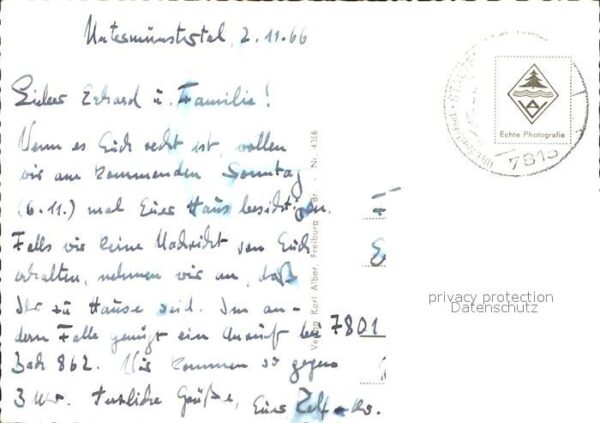 Untermünstertal, 2.11.66
Lieber Erhard u. Familie!
Wenn es Euch recht ist, wollen
wir am kommenden Sonntag
(6.11.) mal Euer Haus besichtigen.
Falls wir keine Nachricht von Euch
erhalten, nehmen wir an, daß
Ihr zu Hause seid. Im an-
dern Falle genügt ein Anruf bei
862. Wir kommen so gegen
3 Uhr. Herzliche Grüße, Eure
7801
Verlag Karl Alber, Freiburg Br. Nr. 4366
Echte Photografie
7813
privacy protection
Datenschutz